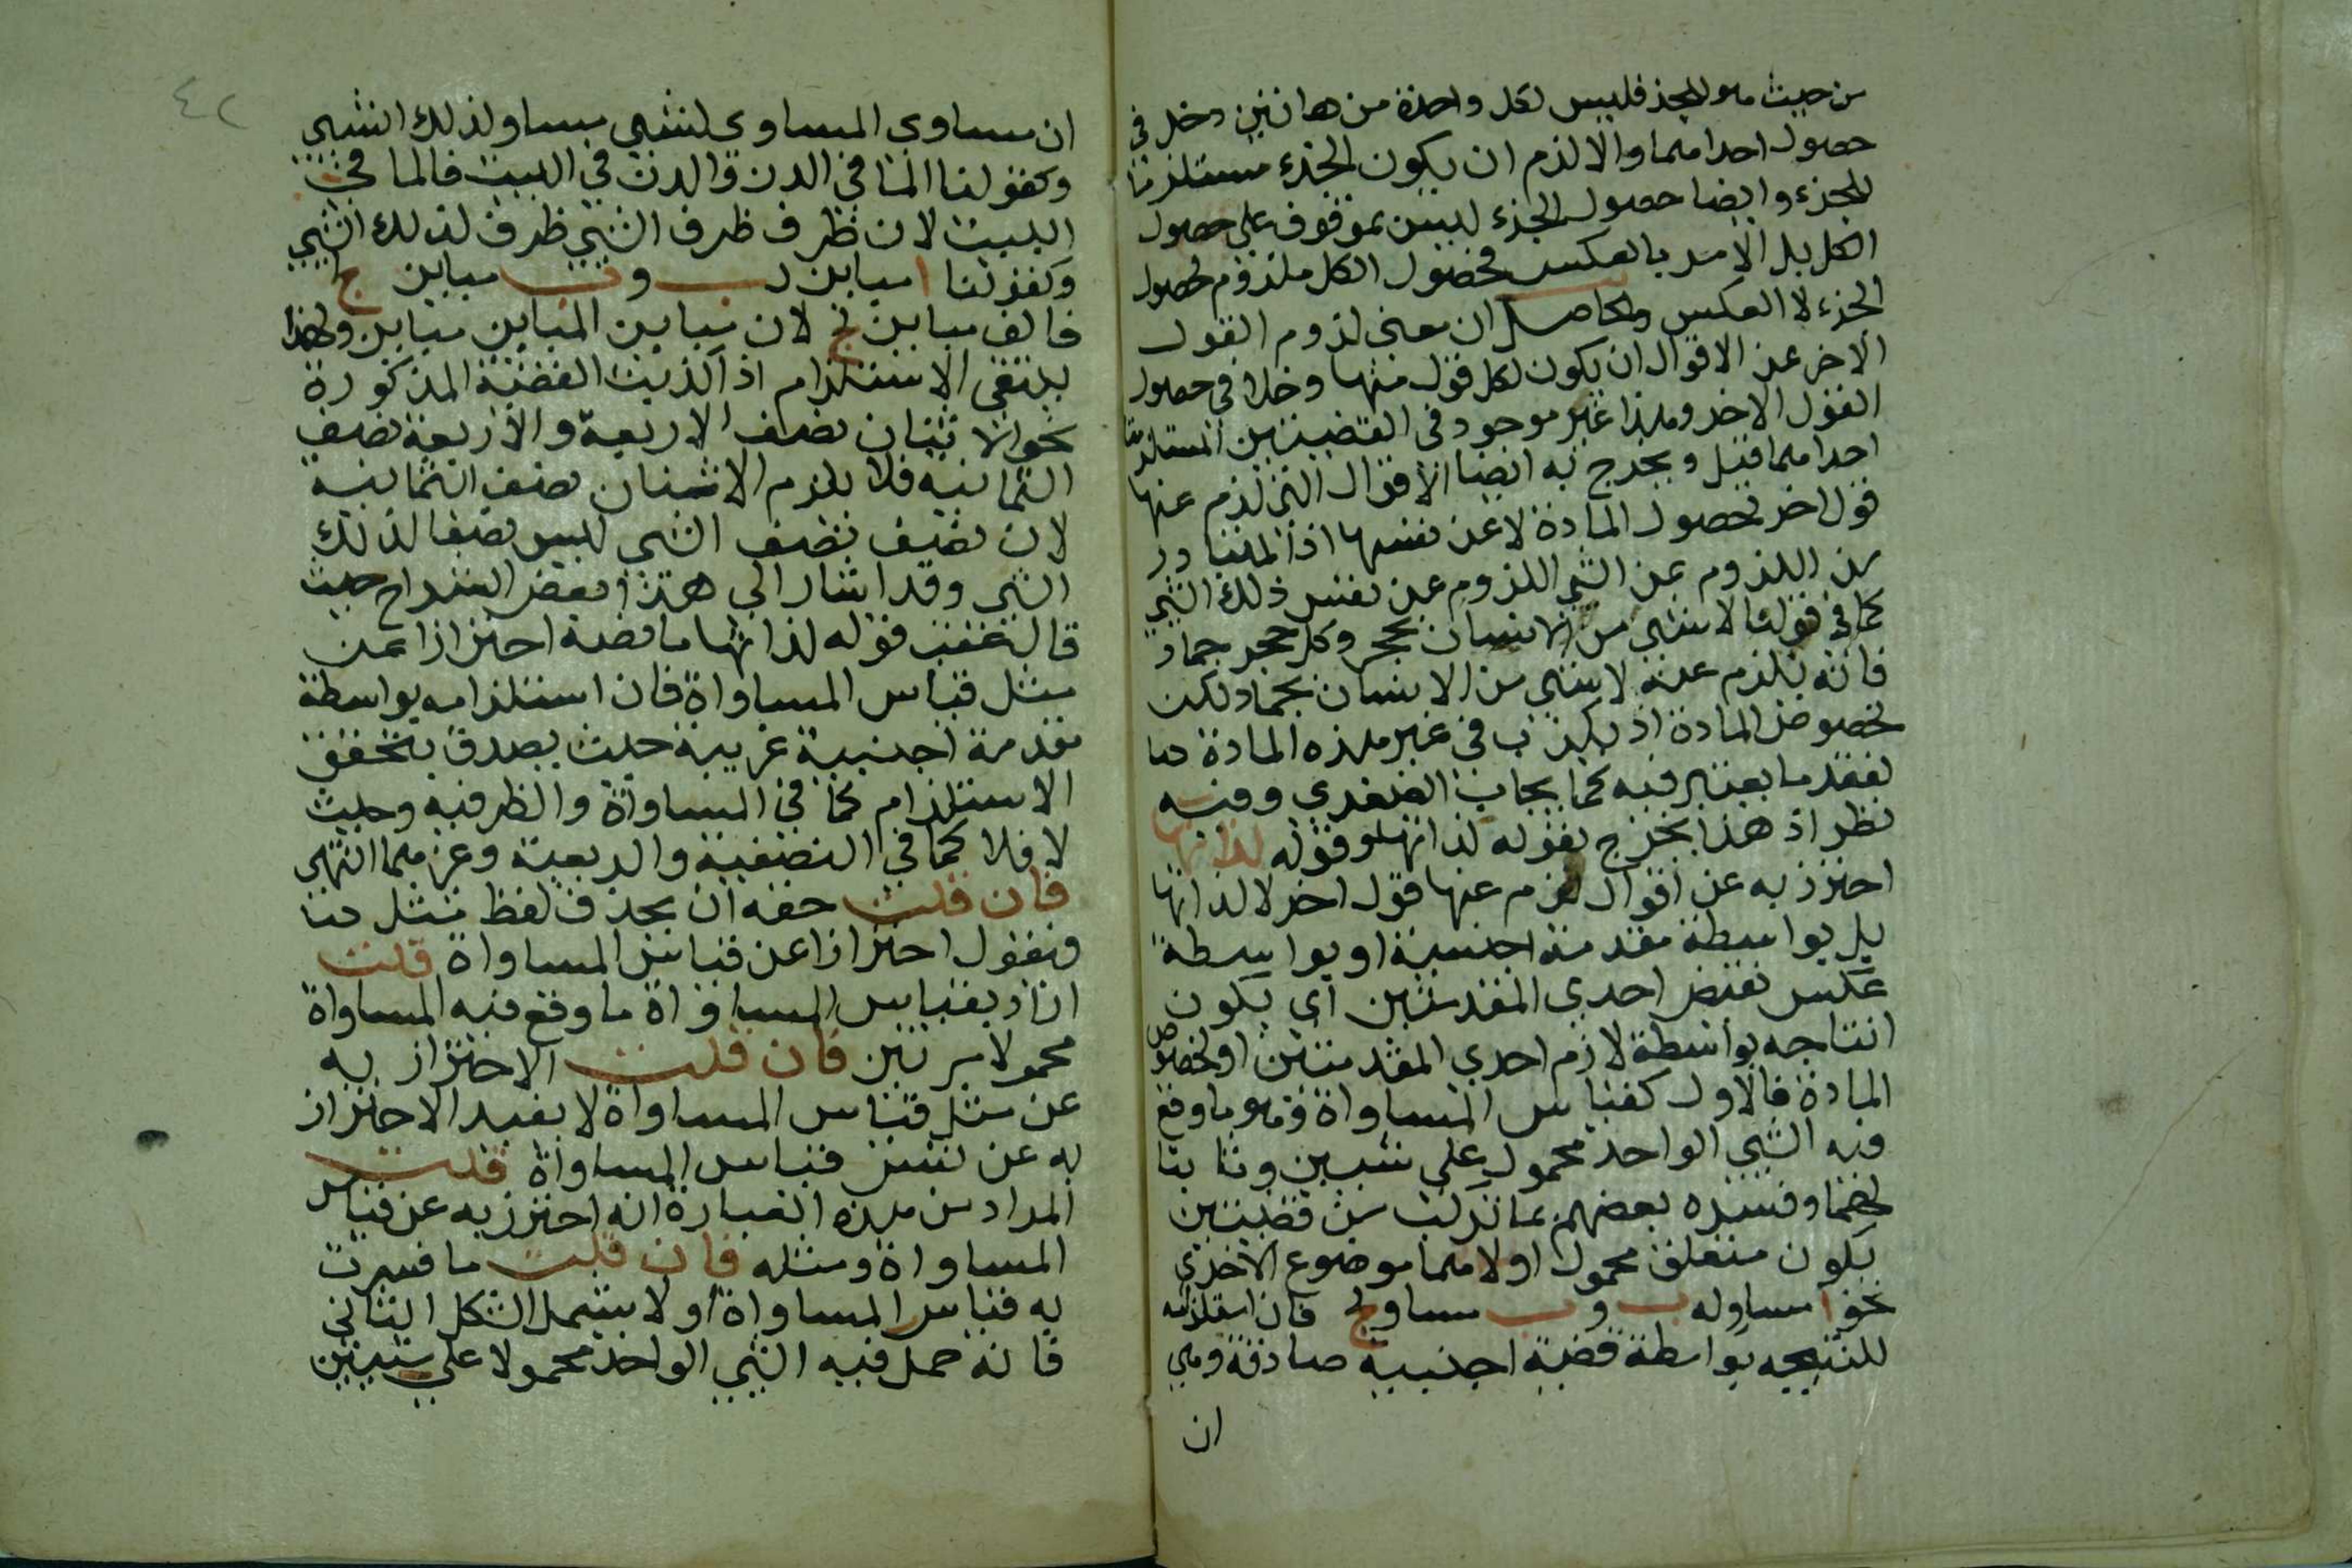 من حيث هو الجزء فليس لكل واحدة من هاتين دخل في
حصول احداهما والا لزم ان يكون الجزء مستلزما
للجزء وايضا حصول الجزء ليس بموقوف على حصول
الكل بل الامر بالعكس فحصول الكل ملزوم لحصول
الجزء لا العكس والحاصل ان معنى لزوم القول
الاخر عن الاقوال ان يكون لكل قول منها دخلا في حصول
القول الاخر وهذا غير موجود في القضيتين المستلزمتا
احداهما قيل ويخرج به ايضا الاقوال التي لزم عنها
قول اخر لخصول المادة لا عن نفسها اذ المتبادر
من اللزوم عن الشي اللزوم عن نفس ذلك الشي
كما في قولنا لا شي من الانسان بحجر وكل حجر جماد
فانه يلزم عنه لا شي من الانسان بجماد لكن
لخصوص المادة اذ يكذب في غير هذه المادة
لفقد ما يعتبر فيه كايجاب الصغرى وفيه
نظر اذ هذا يخرج بقوله لذاتها وقوله لذاتها
احترز به عن اقوال لزم عنها قول اخر لا لذاتها
بل بواسطة مقدمة اجنبية او بواسطة
عكس نقيض احدى المقدمتين اي يكون
انتاجه بواسطة لازم احدى المقدمتين او لخصوص
المادة فالاول كقياس المساواة وهو ما وقع
فيه الشي الواحد محمول على شيين وثابتا
لهما وفسره بعضهم بما تركب من قضيتين
يكون متعلق محمول اولاهما موضوع الاخرى
نحو ا مساو له ب و ب مساو لج فان استلزامه
للنتيجه بواسطة قضية اجنبية صادقة وهي
ان
٤٢
ان مساوي المساوي لشي مساو لذلك الشي
وكقولنا الما في الدن والدن في البيت فالما في
البيت لان ظرف ظرف الشي ظرف لذلك الشي
وكقولنا ا مباين لب و ب مباين لج
فالف مباين لج لان مباين المباين مباين ولهذا
ينتفي الاستلزام اذا كذبت القضية المذكورة
نحو الاثنان نصف الاربعة والاربعة نصف
الثمانية فلا يلزم الاثنان نصف الثمانية
لان نصف نصف الشي ليس نصفا لذلك
الشي وقد اشار الى هذا بعض الشراح حيث
قال عقب قوله لذاتها ما نصه احترازا عن
مثل قياس المساواة فان استلزامه بواسطة
مقدمة اجنبية غريبة حيث يصدق يتحقق
الاستلزام كما في المساواة والظرفية وحيث
لا فلا كما في النصفية والربعية وغيرهما انتهى
فان قلت حقه ان يحذف لفظ مثل هنا
ويقول احترازا عن قياس المساواة قلت
اراد بقياس المساواة ما وقع فيه المساواة
محمولا مرتين فان قلت الاحتراز به
عن مثل قياس المساواة لا يفيد الاحتراز
به عن نفس قياس المساواة قلت
المراد من هذه العبارة انه احترز به عن قياس
المساواة ومثله فان قلت ما فسرت
به قياس المساواة اولا يشمل الشكل الثاني
فانه حمل فيه الشي الواحد محمولا على شيين